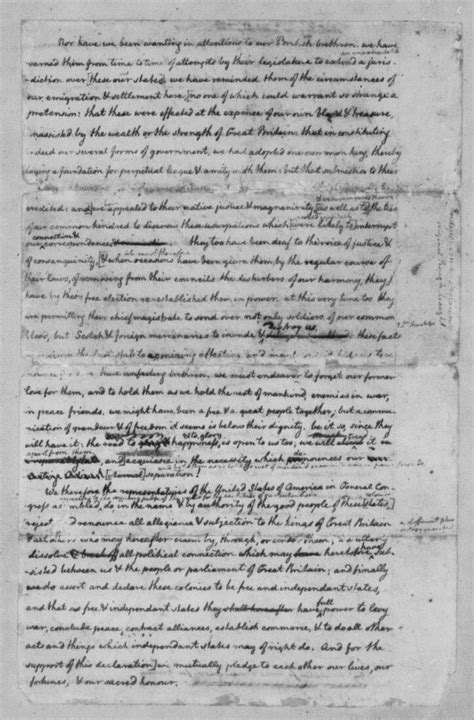 Nor have we been wanting in attentions to our British brethren. we have
warned them from time to time of attempts by their legislature to extend a juris-
-diction over these our states. we have reminded them of the circumstances of
our emigration & settlement here, [no one of which could warrant so strange a
pretension: that these were effected at the expence of our own blood & treasure,
unassisted by the wealth or the strength of Great Britain: that in constituting
indeed our several forms of government, we had adopted one common king, thereby
laying a foundation for perpetual league & amity with them: but that submission to their
credited: and we appealed to their native justice & magnanimity [as well as to the ties
of our common kindred to disavow these usurpations which [were likely to] interrupt
connection &
our correspondence. they too have been deaf to the voice of justice &
of consanguinity, [& when occasions have been given them, by the regular course of
their laws, of removing from their councils the disturbers of our harmony, they
have by their free election re-established them in power. at this very time too they
are permitting their chief magistrate to send over not only soldiers of our common
destroy us.
blood, but Scotch & foreign mercenaries to invade & these facts
have given the last stab to agonizing affection, and manly spirit bids us to re-
nounce for ever these unfeeling brethren. we must endeavor to forget our former
love for them, and to hold them as we hold the rest of mankind, enemies in war,
in peace friends. we might have been a free & a great people together; but a commu-
nication of grandeur & of freedom it seems is below their dignity. be it so, since they
& to glory
will have it: the road to happiness is open to us too; we will it
apart from them
and] acquiesce in the necessity which our
[eternal] separation]
We therefore the representatives of the United States of America in General Con-
gress assembled, do in the name & by authority of the good people of these [states,]
[reject & renounce all allegiance & subjection to the kings of Great Britain
& all others who may hereafter claim by, through, or under them; we utterly
dissolve all political connection which may have sub-
-sisted between us & the people or parliament of Great Britain; and finally
we do assert and declare these colonies to be free and independant states,
full
and that as free & independant states they have power to levy
war, conclude peace, contract alliances, establish commerce, & to do all other
acts and things which independant states may of right do. And for the
support of this declaration we mutually pledge to each other our lives, our
fortunes, & our sacred honour.